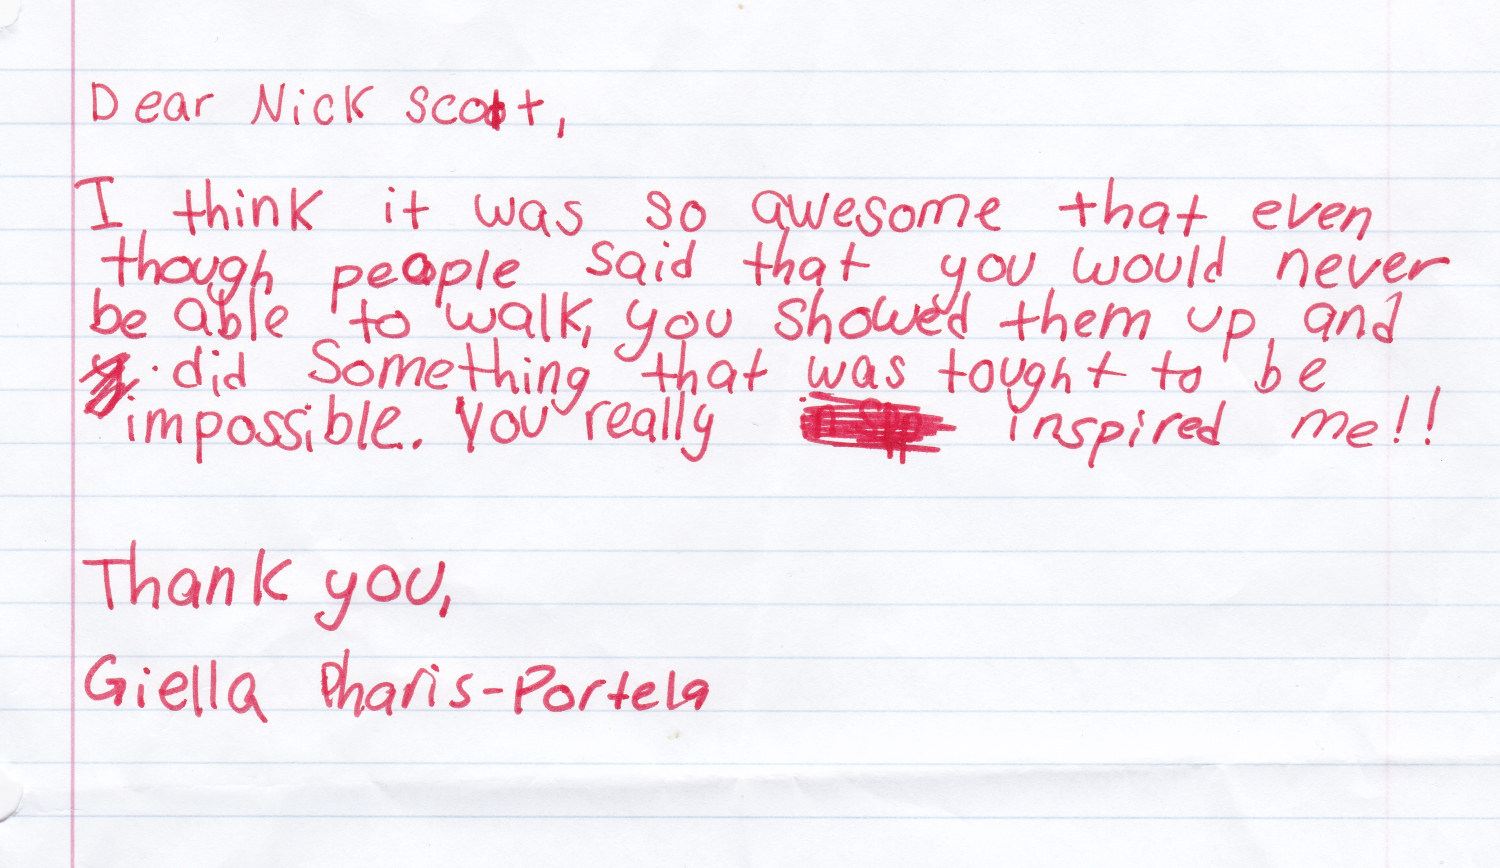 Dear Nick Scott,
I think it was so awesome that even
though people said that you would never
be able to walk, you showed them up, and
did something that was tought to be
impossible. You really inspired me!!
Thank you,
Giella Pharis-Portela